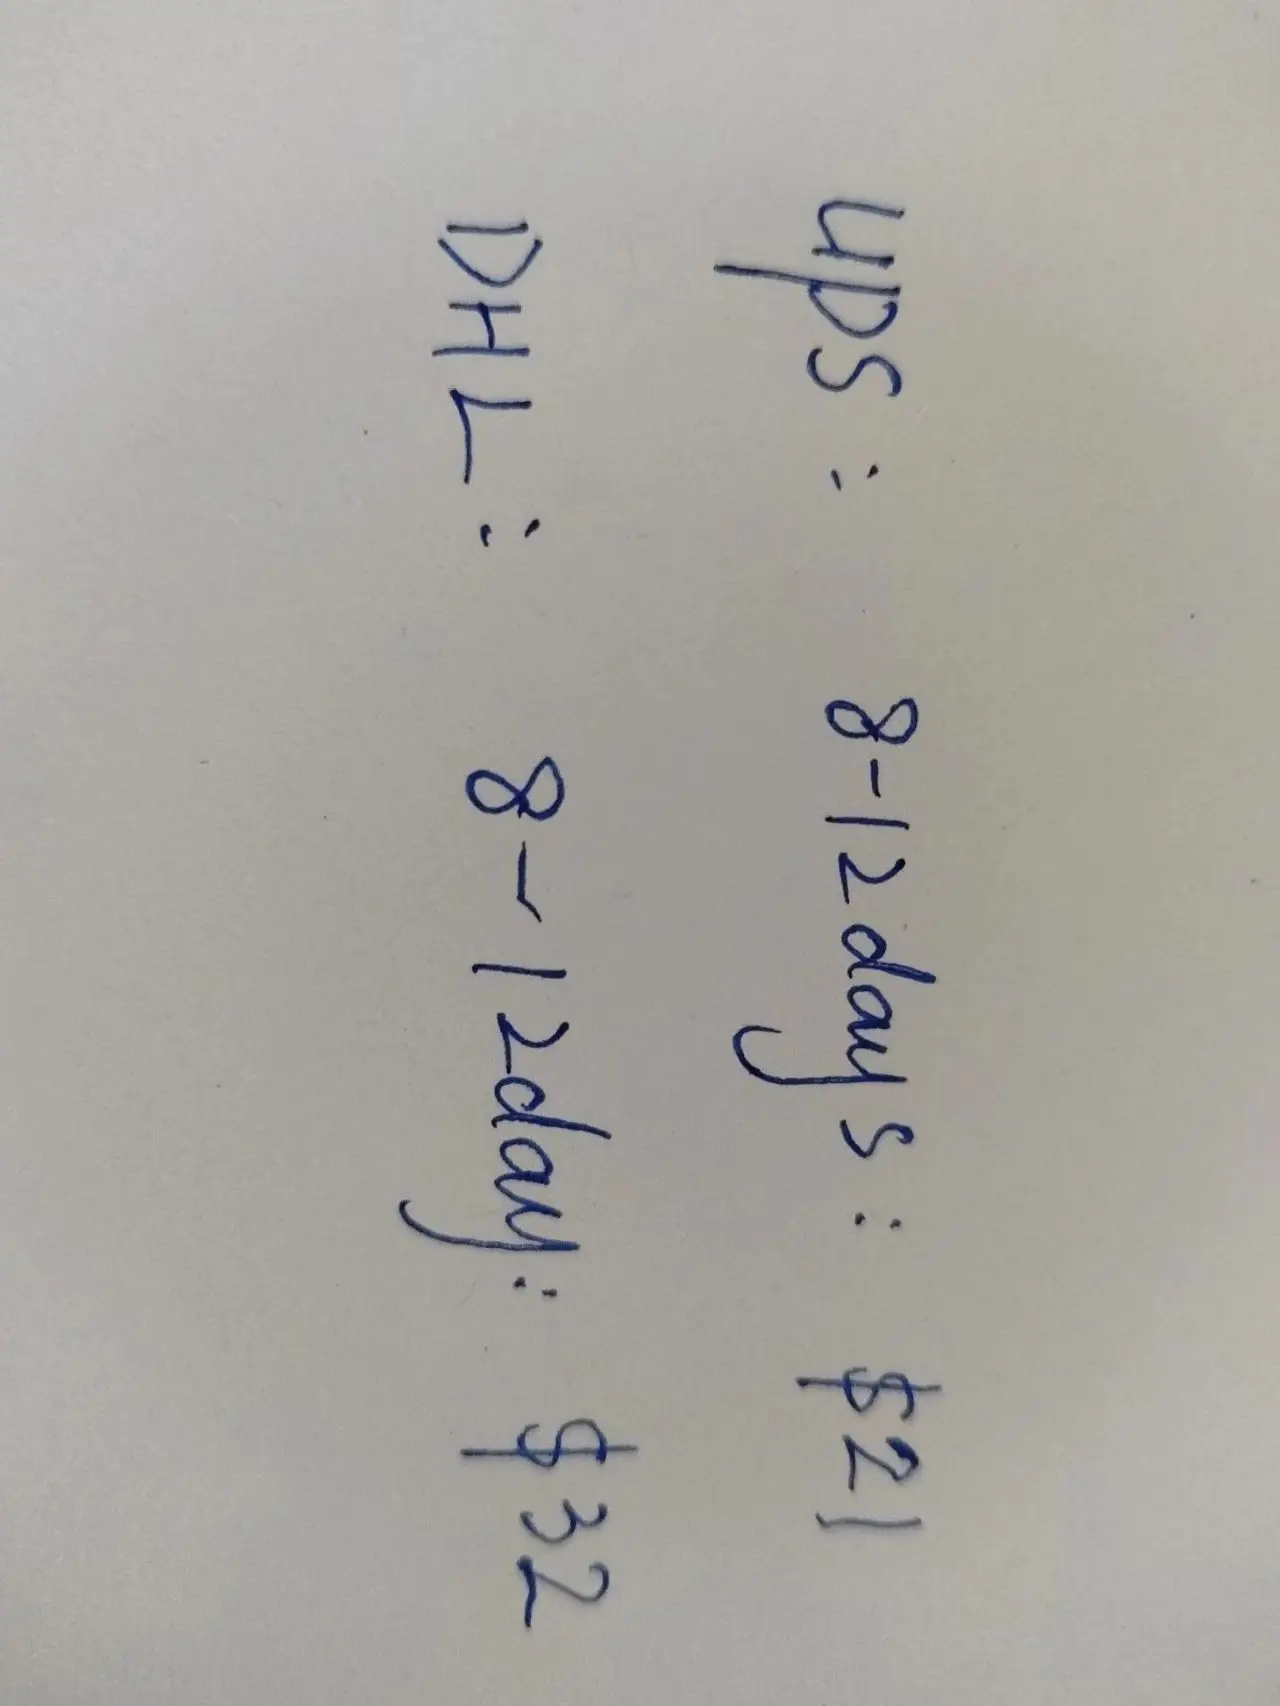 UPS: 8-12days: $21
DHL: 8-12day: $32